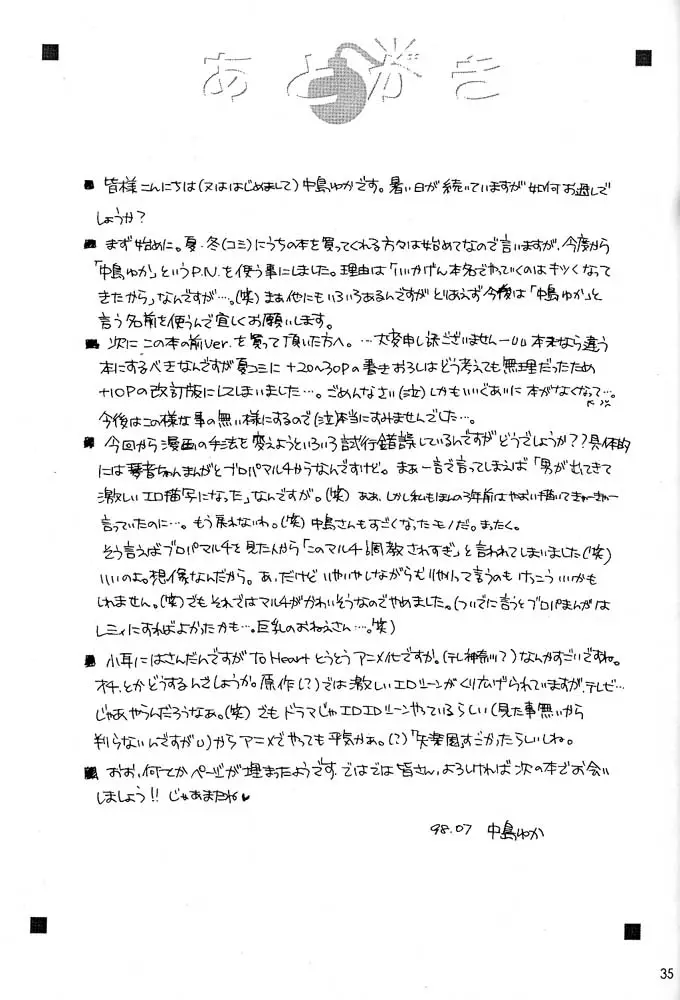 あとがき
■ 皆様こんにちは(又ははじめまして)中島ゆかです。暑い日が続いていますが如何お過しで
しょうか?
■ まず始めに。夏・冬(コミ)にうちの本を買ってくれる方々は始めてなので言いますが、今度から
「中島ゆか」というP.N.を使う事にしました。理由は「いいかげん本名でやっていくのはキツくなって
きたから」なんですが…。(笑)まぁ他にもいろいろあるんですがとりあえず今後は「中島ゆか」と
言う名前を使うんで宜しくお願いします。
■ 次にこの本の前Ver.を買って頂いた方へ。…大変申し訳ございません 本来なら違う
本にするべきなんですが夏コミに+20〜30Pの書きおろしはどう考えても無理だったため
+10Pの改訂版にしてしまいました…。ごめんなさい(泣)しかもいいぐあいに本がなくなって…。
今後はこの様な事の無い様にするので(泣)本当にすみませんでした…。
■ 今回から漫画の手法を変えようといろいろ試行錯誤しているんですがどうでしょうか??具体的
には琴音ちゃんまんがとプロパマルチからなんですけど。まぁ一言で言ってしまえば「男が出てきて
激しいエロ描写になった」なんですが。(笑)ああ、しかし私もほんの3年前はやおい描いてきゃーきゃー
言っていたのに…。もう戻れないわ。(笑)中島さんもすごくなったモノだ。まったく。
そう言えばプロパマルチを見た人から「このマルチ調教されすぎ」と言われてしまいました(笑)
いいのよ。想像なんだから。あ、だけどいやいやしながらむりやりって言うのもけっこういいかも
しれません。(笑)でもそれではマルチがかわいそうなのでやめました。(ついでに言うとプロパまんがは
レミィにすればよかったかも…巨乳のおねえさん…。笑)
■ 小耳にはさんだんですがTo Heartとうとうアニメ化ですか。(テレ神奈川?)なんかすごいですね。
オチ、とかどうするんでしょうか。原作(?)では激しいエロシーンがくり広げられていますが、テレビ…
じゃあやらんだろうなぁ。(笑)でもドラマじゃエロエロシーンやっているらしい(見た事無いから
判らないんですが)からアニメでやっても平気かぁ。(?)「失楽園すごかったらしいしね。
■ おお、何とかページが埋まったようです。ではでは皆さん、よろしければ次の本でお会い
しましょう!!じゃあまたね♥
98.07 中島ゆか
35